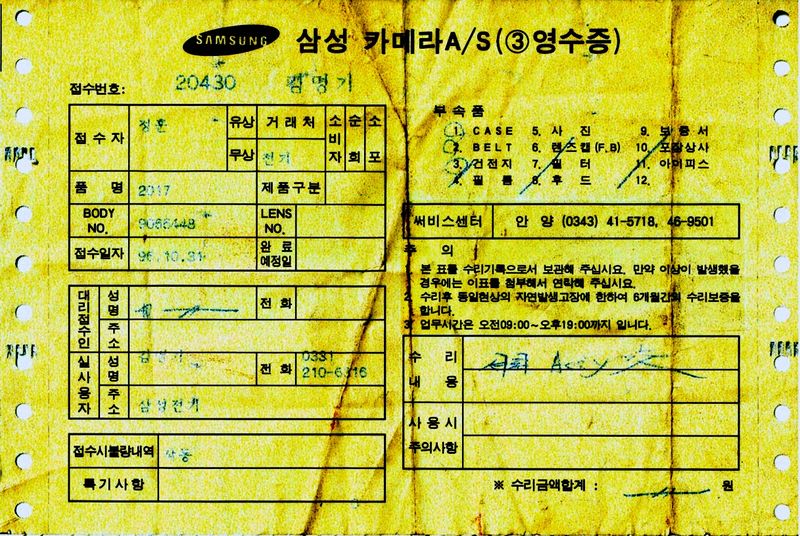 SAMSUNG 삼성 카메라A/S(③영수증)
접수번호: 20430 김명기
접수자 정훈 유상 무상 거래처 전기 소비자 순회 소포
품명 2017 제품구분
BODY NO. 9066448 LENS NO.
접수일자 96.10.31 완료예정일
대리점수인 성명 전화
주소
실사용자 성명 김명기 전화 0331 210-6316
주소 삼성전기
접수시불량내역 작동
특기사항
부속품
1. CASE 5. 사진 9. 보증서
2. BELT 6. 렌즈캡(F.B) 10. 포장상사
3. 건전지 7. 필터 11. 아이피스
4. 필름 8. 후드 12.
써비스센터 안양 (0343) 41-5718, 46-9501
주의
본 표를 수리기록으로서 보관해 주십시요. 만약 이상이 발생했을
경우에는 이표를 첨부해서 연락해 주십시요.
2. 수리후 동일현상의 자연발생고장에 한하여 6개월간의 수리보증을
합니다.
3. 업무시간은 오전09:00~오후19:00까지 입니다.
수리내용
사용시주의사항
※ 수리금액합계 : 원